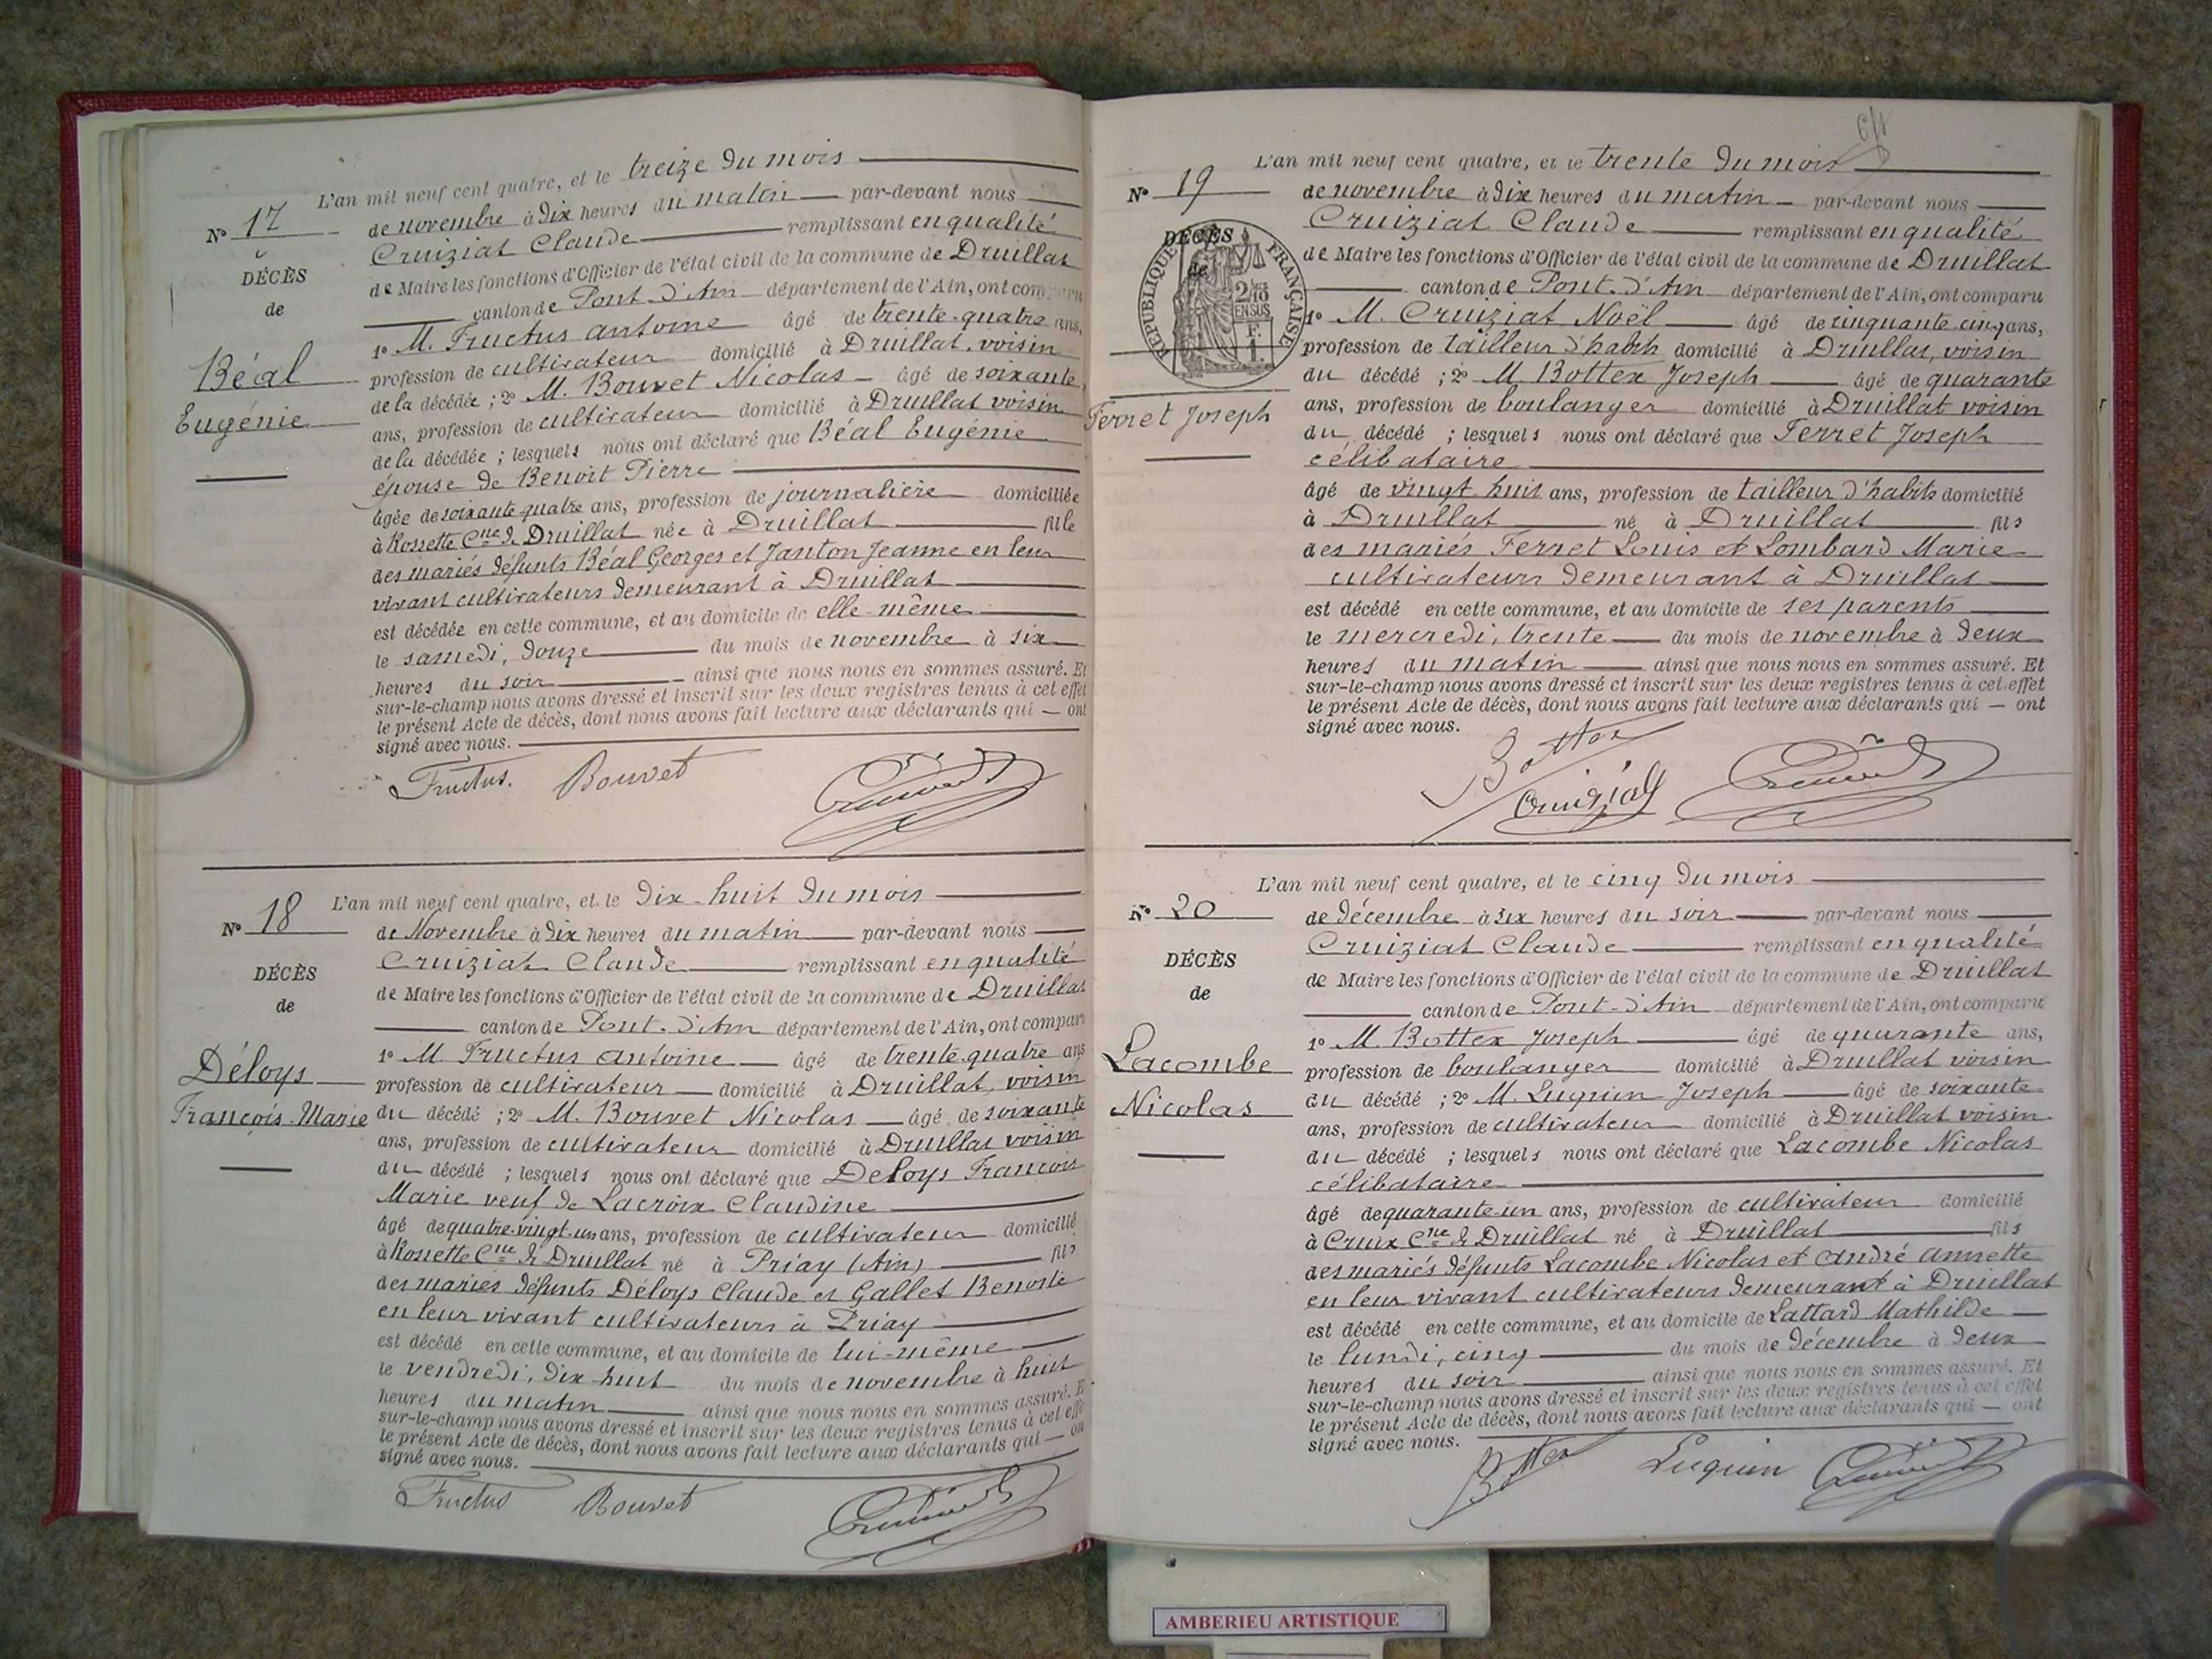 L'an mil neuf cent quatre, et le treize du mois
N° 17
de novembre à dix heures du matin par-devant nous
Cruiziat Claude remplissant en qualité
DÉCÈS
de Maire les fonctions d'Officier de l'état civil de la commune de Druillat
de
canton de Pont-d'Ain département de l'Ain, ont comparu
1° M. Fructus Antoine âgé de trente-quatre ans,
Béal
profession de cultivateur domicilié à Druillat, voisin
Eugénie
de la décédée ; 2° M. Bouvet Nicolas âgé de soixante
ans, profession de cultivateur domicilié à Druillat voisin
de la décédée ; lesquels nous ont déclaré que Béal Eugénie
épouse de Benoit Pierre
âgée de soixante-quatre ans, profession de journalière domiciliée
à Rossette Cne de Druillat née à Druillat fille
des mariés défunts Béal Georges et Janton Jeanne en leur
vivant cultivateurs demeurant à Druillat
est décédée en cette commune, et au domicile de elle-même
le samedi, douze du mois de novembre à six
heures du soir ainsi que nous nous en sommes assuré. Et
sur-le-champ nous avons dressé et inscrit sur les deux registres tenus à cet effet
le présent Acte de décès, dont nous avons fait lecture aux déclarants qui — ont
signé avec nous.
Fructus. Bouvet
L'an mil neuf cent quatre, et le dix-huit du mois
N° 18
de Novembre à dix heures du matin par-devant nous
Cruiziat Claude remplissant en qualité
DÉCÈS
de Maire les fonctions d'Officier de l'état civil de la commune de Druillat
de
canton de Pont-d'Ain département de l'Ain, ont comparu
1° M. Fructus Antoine âgé de trente-quatre ans
Déloys
profession de cultivateur domicilié à Druillat, voisin
François-Marie
du décédé ; 2° M. Bouvet Nicolas âgé de soixante
ans, profession de cultivateur domicilié à Druillat voisin
du décédé ; lesquels nous ont déclaré que Deloys François
Marie veuf de Lacroix Claudine
âgé de quatre-vingt-un ans, profession de cultivateur domicilié
à Rossette Cne de Druillat né à Priay (Ain) fils
des mariés défunts Déloys Claude et Gallet Benoite
en leur vivant cultivateurs à Priay
est décédé en cette commune, et au domicile de lui-même
le vendredi, dix-huit du mois de novembre à huit
heures du matin ainsi que nous nous en sommes assuré. E
sur-le-champ nous avons dressé et inscrit sur les deux registres tenus à cet effe
le présent Acte de décès, dont nous avons fait lecture aux déclarants qui — on
signé avec nous.
Fructus Bouvet
L'an mil neuf cent quatre, et le trente du mois
N° 19
de novembre à dix heures du matin par-devant nous
Cruiziat Claude remplissant en qualité
DÉCÈS
de
RÉPUBLIQUE FRANÇAISE
de Maire les fonctions d'Officier de l'état civil de la commune de Druillat
canton de Pont-d'Ain département de l'Ain, ont comparu
1° M. Cruiziat Noël âgé de cinquante cinq ans,
profession de tailleur d'habits domicilié à Druillat, voisin
du décédé ; 2° M. Bottex Joseph âgé de quarante
Ferret Joseph
ans, profession de boulanger domicilié à Druillat voisin
du décédé ; lesquels nous ont déclaré que Ferret Joseph
célibataire
âgé de vingt-huit ans, profession de tailleur d'habits domicilié
à Druillat né à Druillat fils
des mariés Ferret Louis et Lombard Marie
cultivateurs demeurant à Druillat
est décédé en cette commune, et au domicile de ses parents
le mercredi, trente du mois de novembre à deux
heures du matin ainsi que nous nous en sommes assuré. Et
sur-le-champ nous avons dressé et inscrit sur les deux registres tenus à cet effet
le présent Acte de décès, dont nous avons fait lecture aux déclarants qui — ont
signé avec nous.
Bottex
Cruiziat
L'an mil neuf cent quatre, et le cinq du mois
N° 20
de décembre à six heures du soir par-devant nous
Cruiziat Claude remplissant en qualité
DÉCÈS
de Maire les fonctions d'Officier de l'état civil de la commune de Druillat
de
canton de Pont-d'Ain département de l'Ain, ont comparu
1° M. Bottex Joseph âgé de quarante ans,
Lacombe
profession de boulanger domicilié à Druillat voisin
Nicolas
du décédé ; 2° M. Luquin Joseph âgé de soixante
ans, profession de cultivateur domicilié à Druillat voisin
du décédé ; lesquels nous ont déclaré que Lacombe Nicolas
célibataire
âgé de quarante-un ans, profession de cultivateur domicilié
à Cruix Cne de Druillat né à Druillat fils
des mariés défunts Lacombe Nicolas et André Annette
en leur vivant cultivateurs demeurant à Druillat
est décédé en cette commune, et au domicile de Lattard Mathilde
le lundi, cinq du mois de décembre à deux
heures du soir ainsi que nous nous en sommes assuré. Et
sur-le-champ nous avons dressé et inscrit sur les deux registres tenus à cet effet
le présent Acte de décès, dont nous avons fait lecture aux déclarants qui — ont
signé avec nous.
Bottex Luquin
AMBERIEU ARTISTIQUE